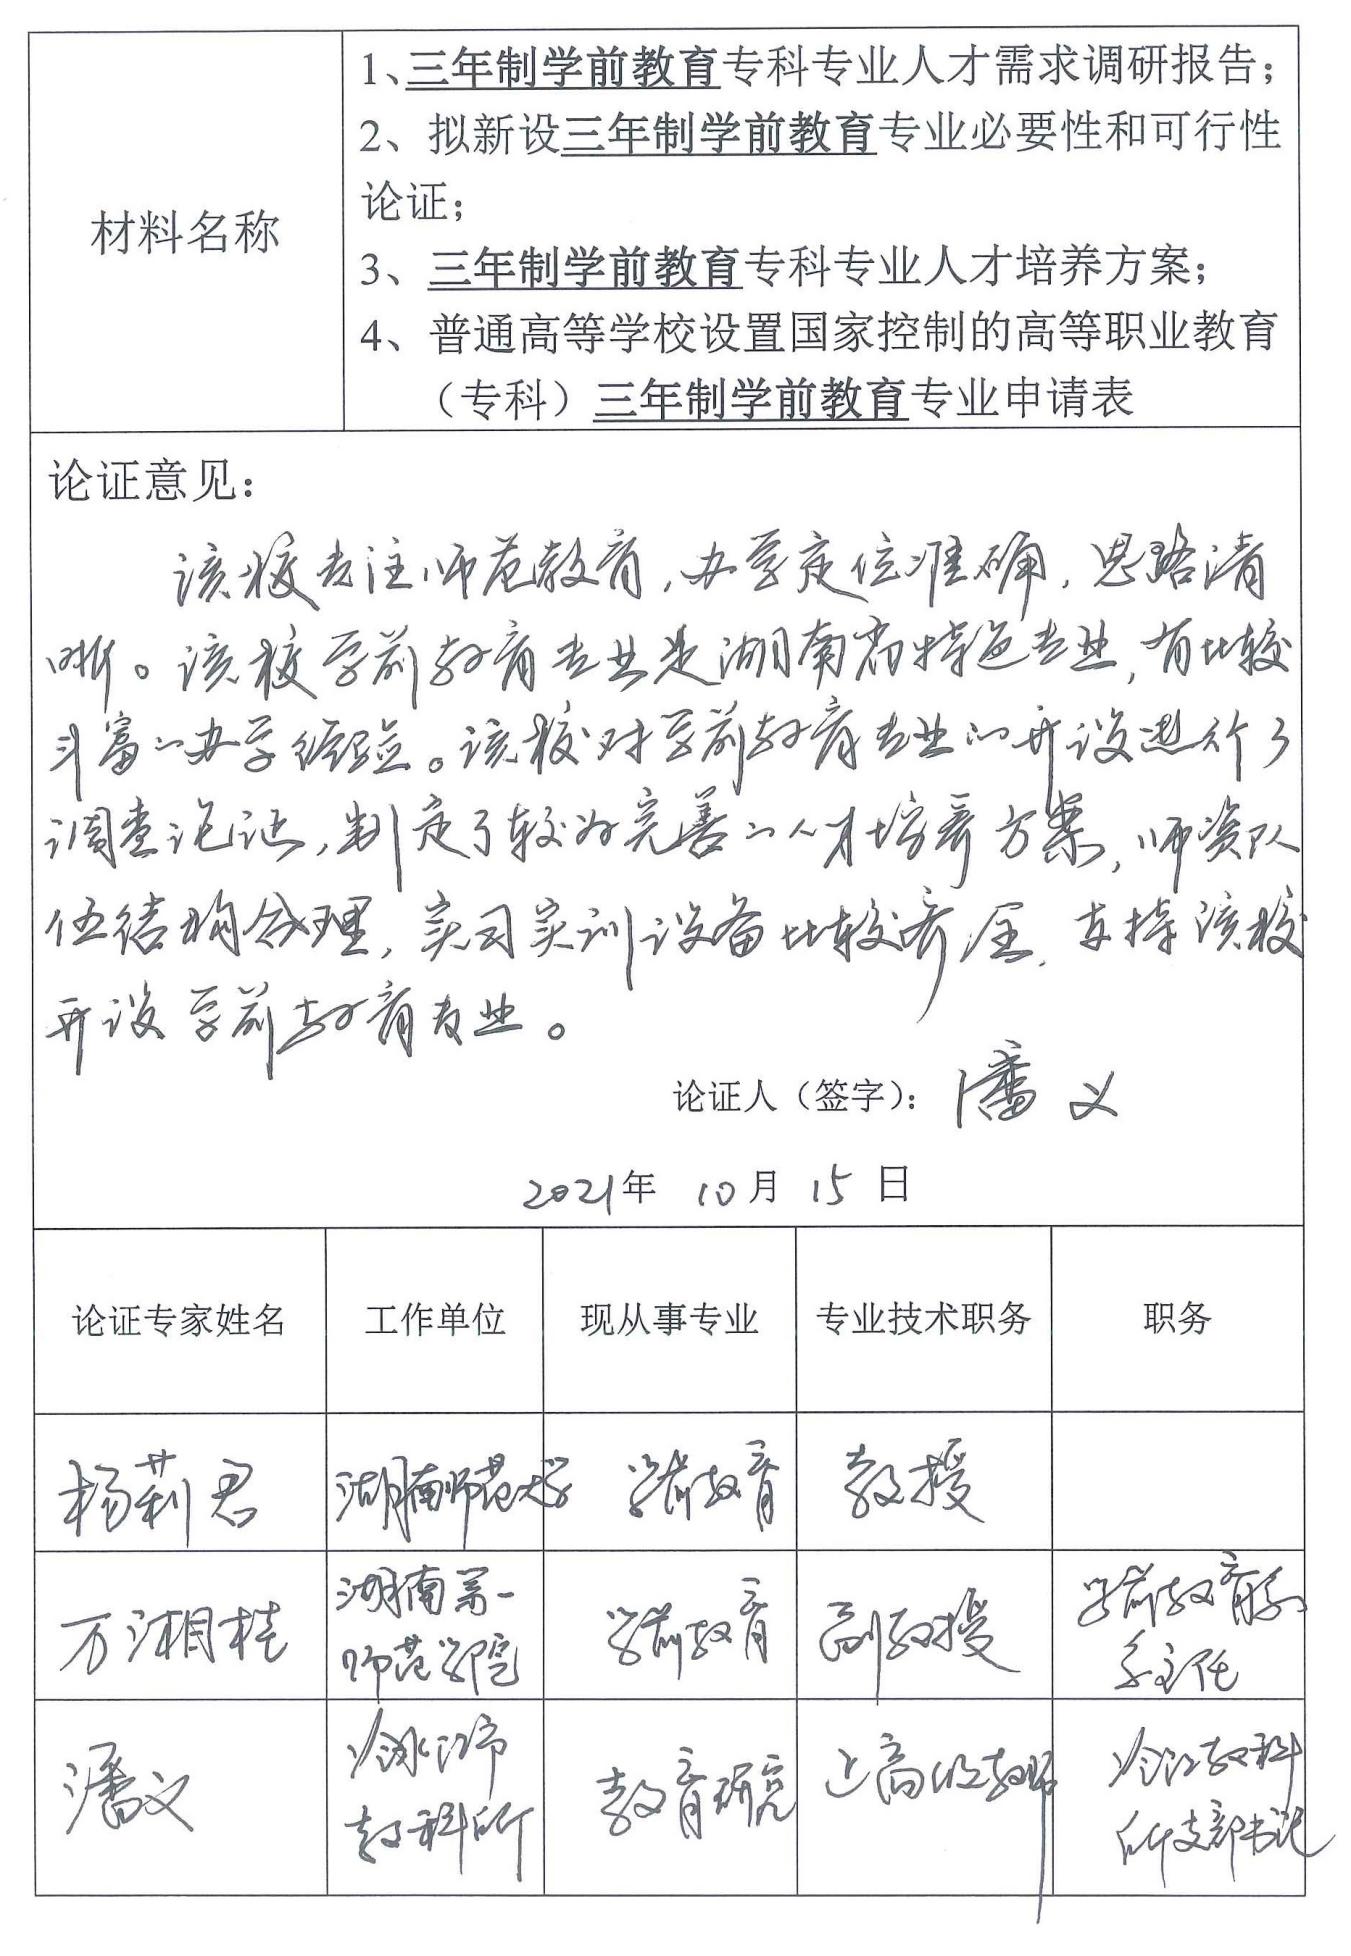 材料名称
1、三年制学前教育专科专业人才需求调研报告；
2、拟新设三年制学前教育专业必要性和可行性
论证；
3、三年制学前教育专科专业人才培养方案；
4、普通高等学校设置国家控制的高等职业教育
（专科）三年制学前教育专业申请表
论证意见：
该校专注师范教育，办学定位准确，思路清
晰。该校学前教育专业是湖南省特色专业，有比较
丰富的办学经验。该校对学前教育专业的开设进行了
调查论证，制定了较为完善的人才培养方案，师资队
伍结构合理，实习实训设备比较齐全，支持该校
开设学前教育专业。
论证人（签字）：潘义
2021年 10月 15日
论证专家姓名 工作单位 现从事专业 专业技术职务 职务
杨莉君 湖南师范大学 学前教育 教授
万湘桂 湖南第一师范学院 学前教育 副教授 学前教育系系主任
潘义 冷水江市教科所 教育研究 高级教师 冷江教科所支部书记